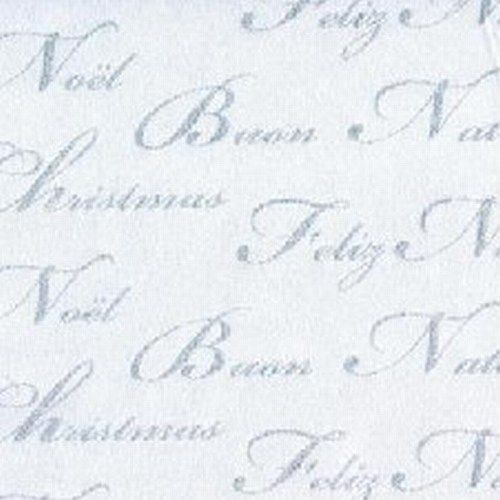 Feliz N
Noël
Buon Nat
Christmas
Feliz N
Noël
Buon Nat
Christmas
Feliz N